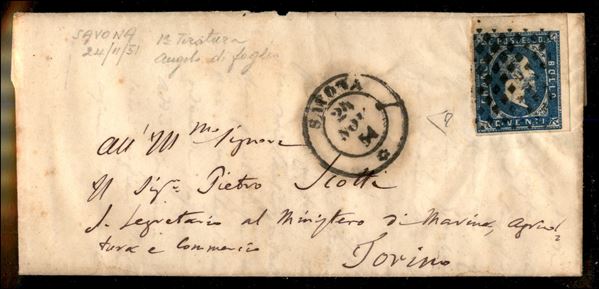 SAVONA
24/11/51
1ª Tiratura
angolo di foglio
C. POSTE
BOLLO
C. VENTI
SAVONA
24
NOV
51
All' Ill.mo Signore
Il Sig.r Pietro Scotti
S. Segretario al Ministero di Marina, Agricol
tura e Commercio
Torino